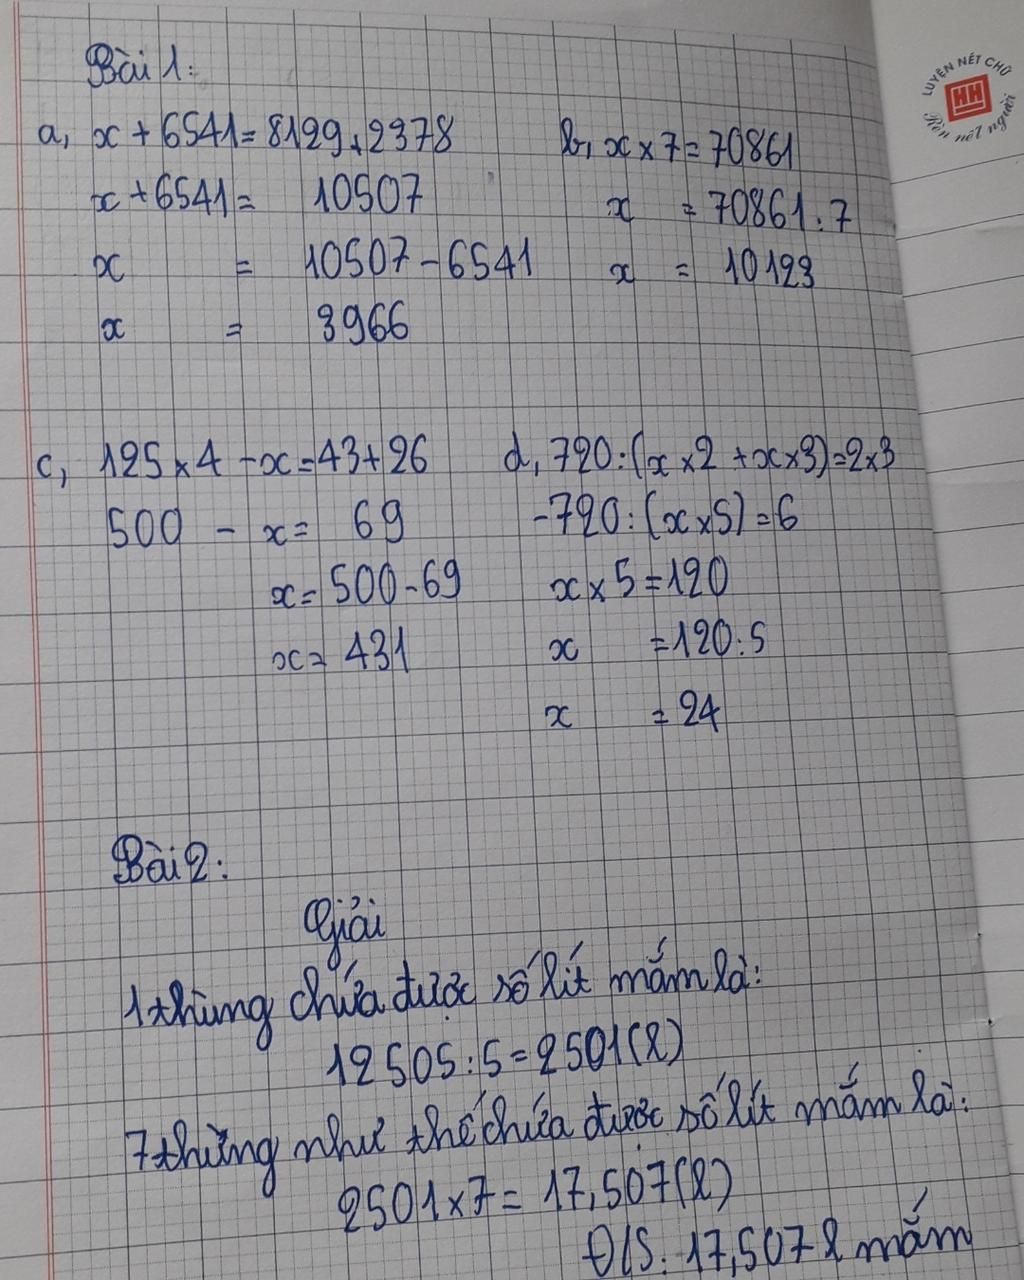 Bài 1:
a, x + 6541 = 8129 + 2378
x + 6541 = 10507
x = 10507 - 6541
x = 3966
b, x x 7 = 70861
x = 70861 : 7
x = 10123
c, 125 x 4 - x = 43 + 26
500 - x = 69
x = 500 - 69
x = 431
d, 720 : (x x 2 + x x 3) = 2 x 3
-720 : (x x 5) = 6
x x 5 = 120
x = 120 : 5
x = 24
Bài 2:
Giải
1 thùng chứa được số lít mắm là:
12505 : 5 = 2501 (l)
7 thùng như thế chứa được số lít mắm là:
2501 x 7 = 17,507 (l)
Đ/S: 17,507 l mắm
LUYỆN NÉT CHỮ
HH
Rèn nết người